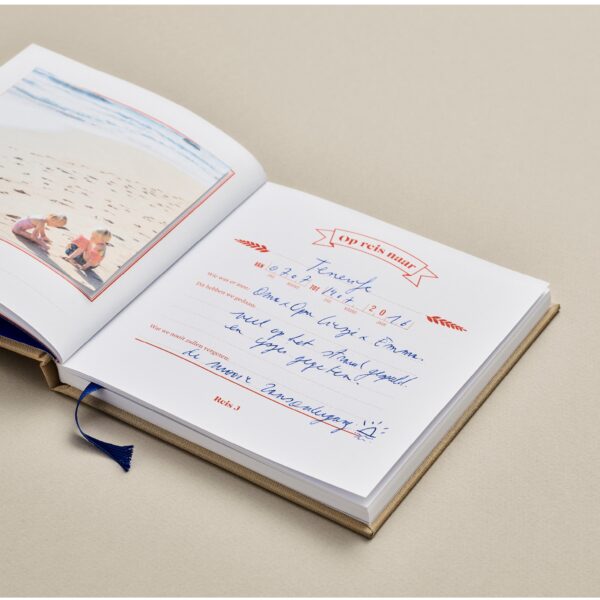 Op reis naar
Tenerife
VAN 07 07 TOT 14 07 2016
Wie was er mee:
Oma & Opa Luigi & Emma.
Dit hebben we gedaan:
veel op het strand gespeeld.
en ijsjes gegeten.
Wat we nooit zullen vergeten:
de mooie zonsondergang
Reis 3